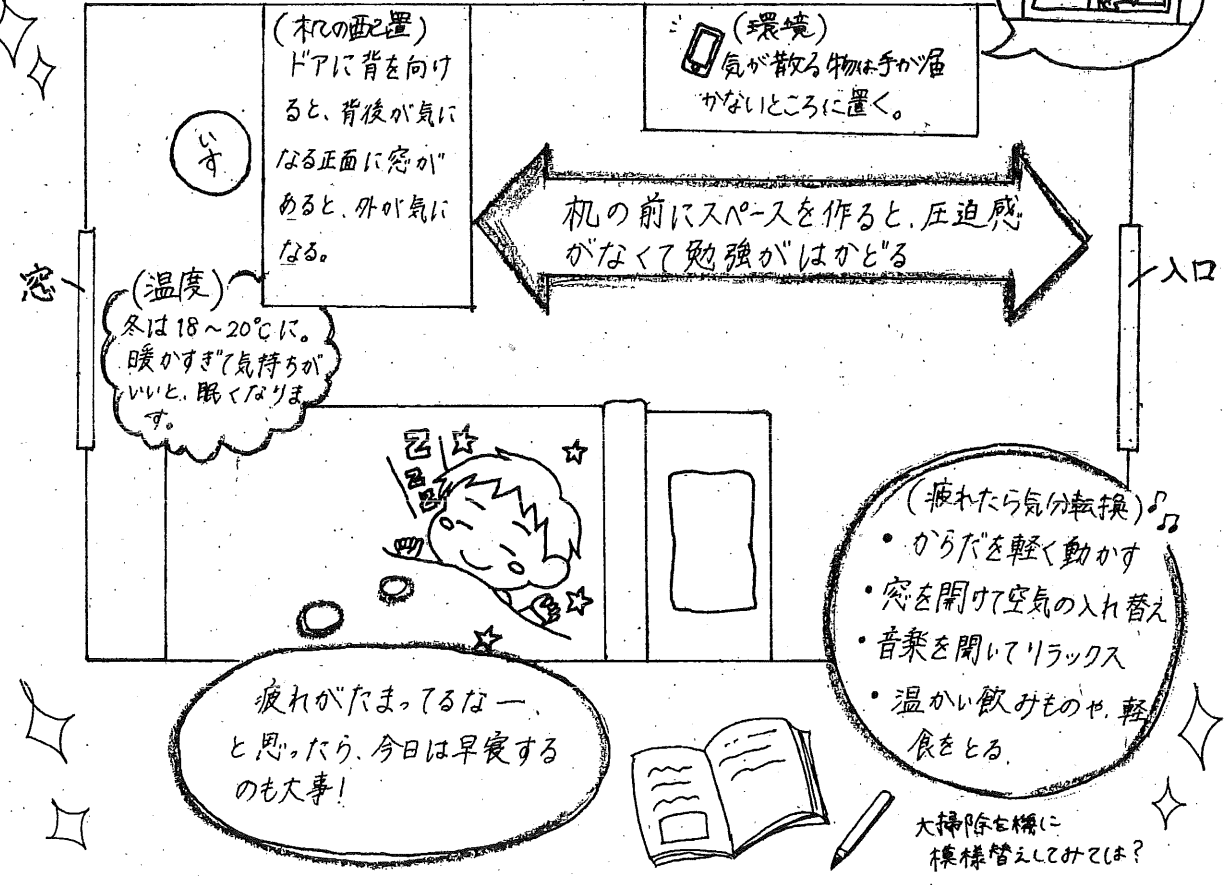 (机の配置)
ドアに背を向け
ると、背後が気に
なる正面に窓が
あると、外が気に
なる。
(環境)
気が散る物は手が届
かないところに置く。
いす
机の前にスペースを作ると、圧迫感
がなくて勉強がはかどる
窓
入口
(温度)
冬は18～20℃に。
暖かすぎて気持ちが
いいと、眠くなりま
す。
Z
Z
Z
(疲れたら気分転換)
・からだを軽く動かす
・窓を開けて空気の入れ替え
・音楽を聞いてリラックス
・温かい飲みものや、軽
食をとる
疲れがたまってるなー、
と思ったら、今日は早寝する
のも大事!
大掃除を機に
模様替えしてみては?